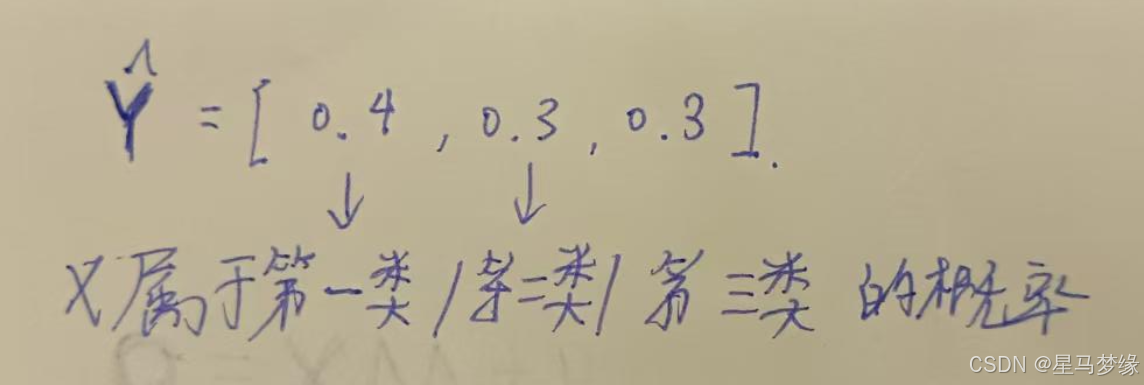 Ŷ = [ 0.4 , 0.3 , 0.3 ].
↓ ↓
X属于第一类/第二类/第三类的概率
CSDN @星马梦缘